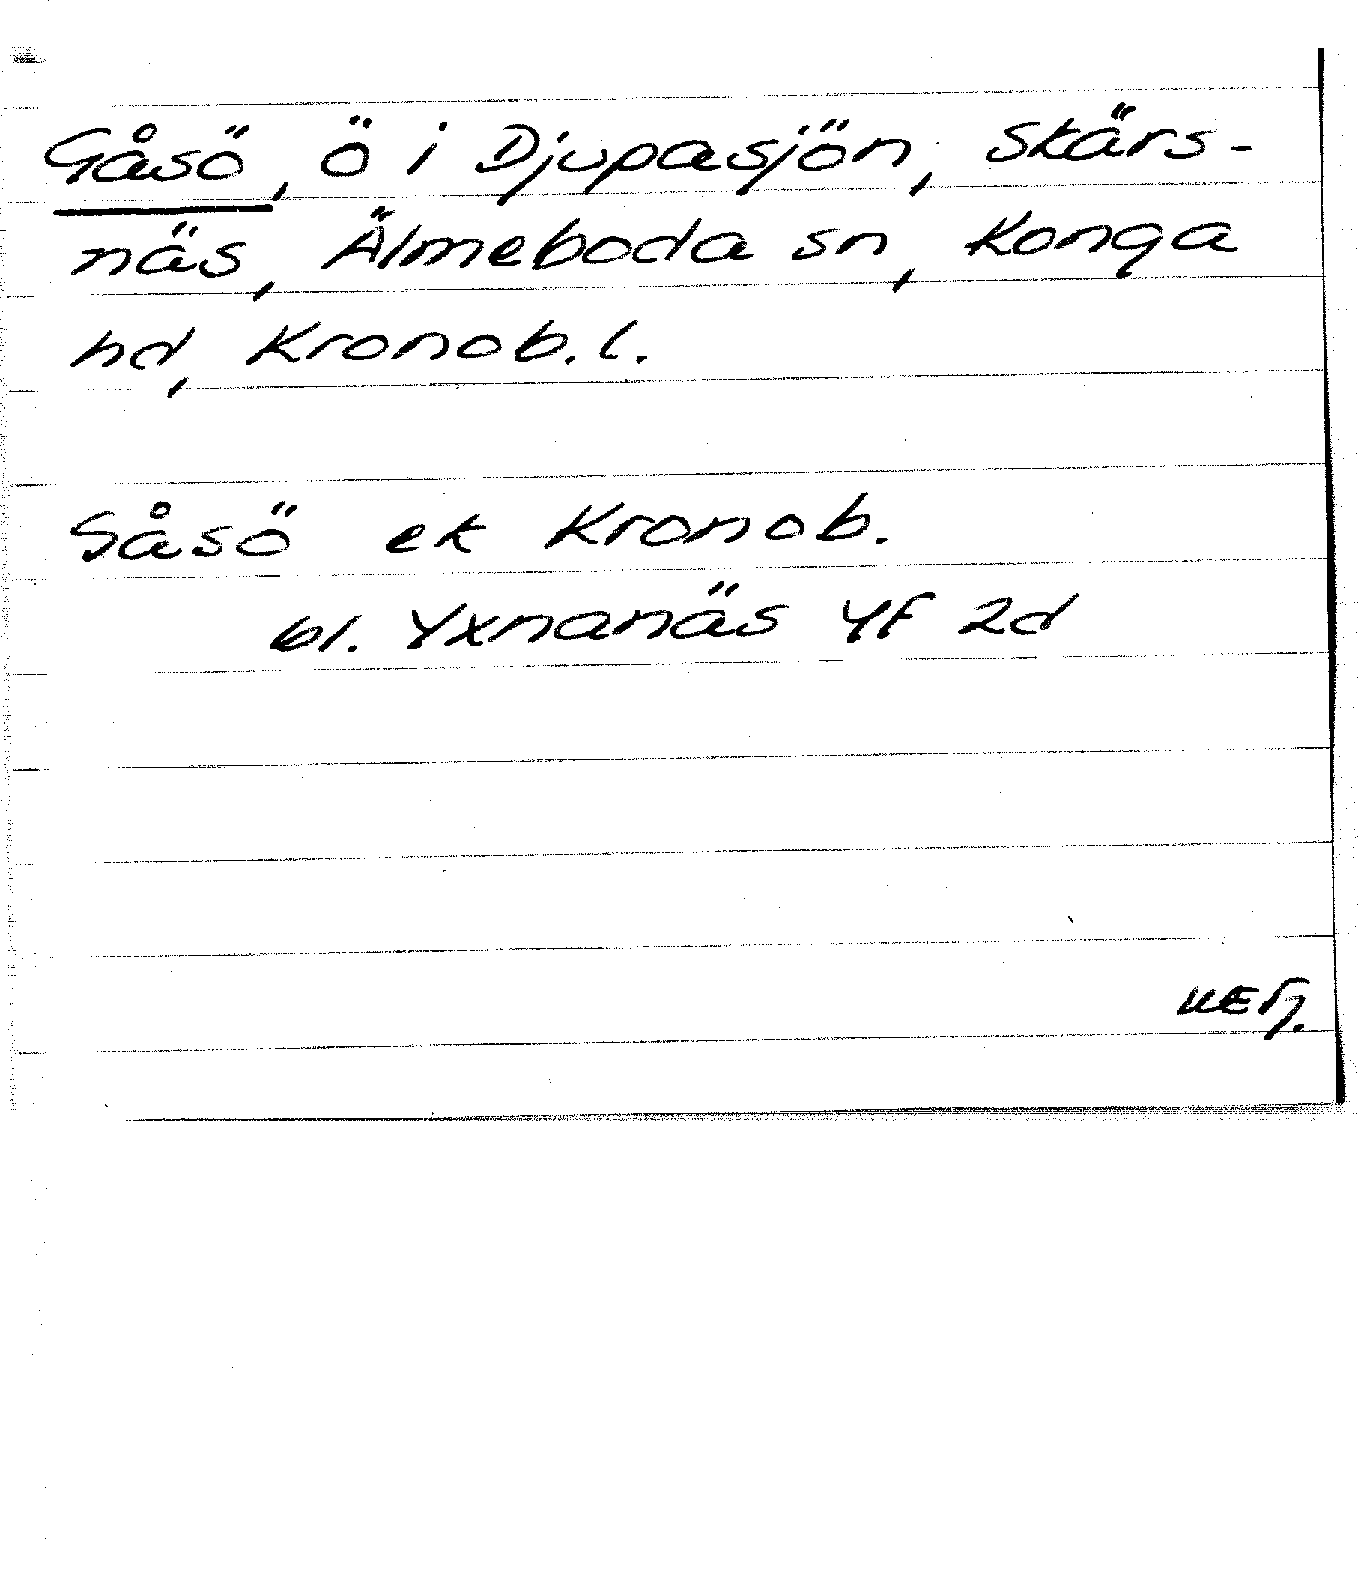 Gåsö, ö i Djupasjön, Skärs-
näs, Älmeboda sn, Konga
hd, Kronob. l.
Gåsö ek Kronob.
bl. Yxnanäs 4F 2d